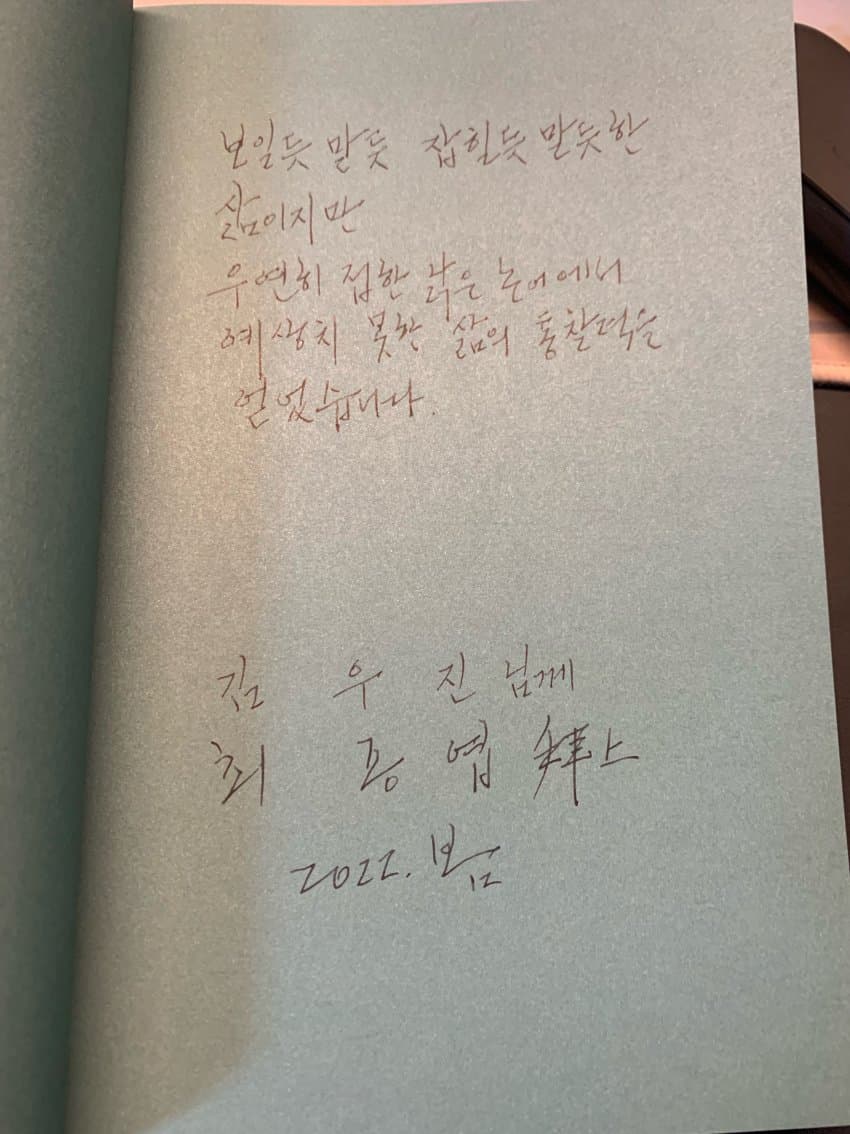 보일듯 말듯 잡힐듯 말듯한
삶이지만
우연히 접한 낡은 논어에서
예상치 못한 삶의 통찰력을
얻었습니다.
김 우 진 님께
최 종 엽 拜上
2022. 봄